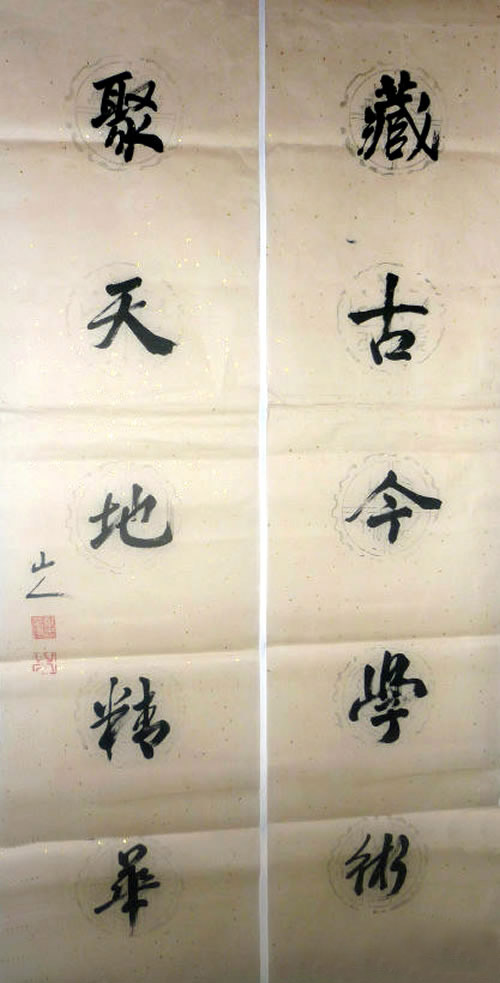 藏古今學術
聚天地精華
山人